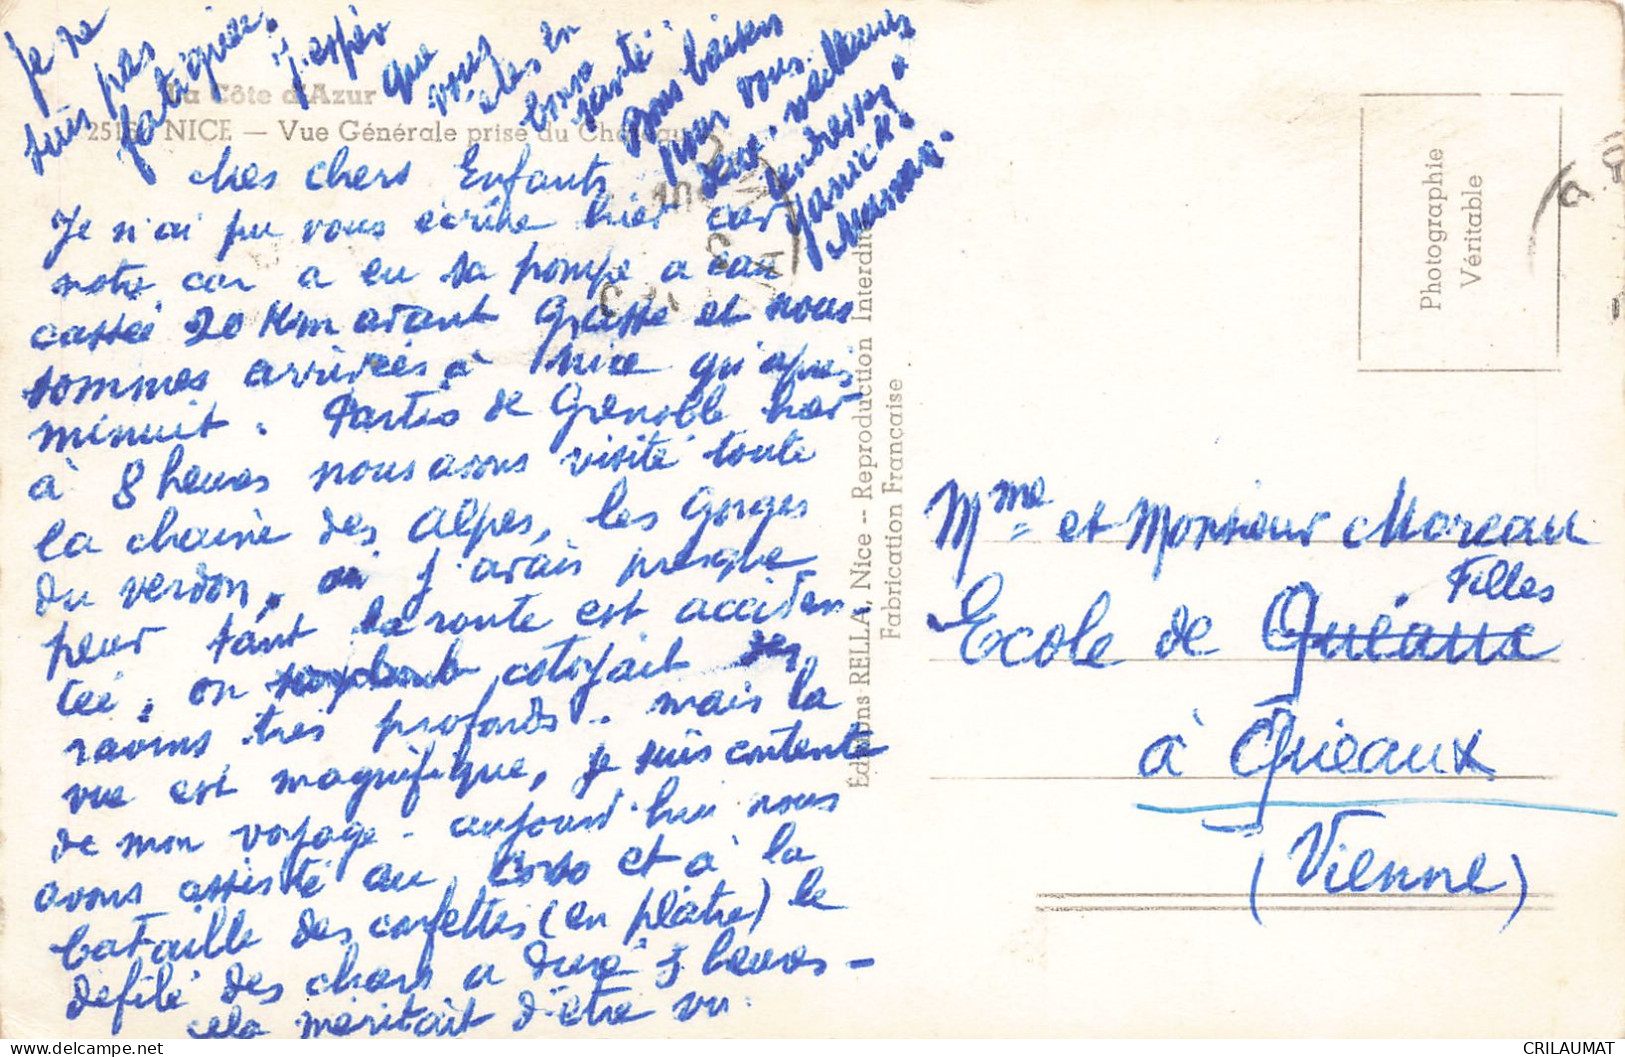 La Côte d'Azur
NICE — Vue Générale prise du Château
Mes chers Enfants
Je n'ai pu vous écrire hier car
notre car a eu sa pompe a eau
cassée 20 Km avant Grasse et nous
sommes arrivées à Nice qu'après
minuit. Parties de Grenoble hier
à 8 heures nous avons visité toute
la chaine des Alpes, les Gorges
du Verdon, où j'avais presque
peur tant la route est acciden
tée, on cotoyait des
ravins très profonds. mais la
vue est magnifique, je suis contente
de mon voyage - aujourd'hui nous
avons assisté au Corso et à la
bataille des confettis (en plâtre) le
défilé des chars a duré 3 heures -
cela méritait d'être vu.
Je ne
suis pas
fatiguée.
J'espère
que
vous
êtes en
bonne
santé.
Bons baisers
pour vous
deux, meilleures
tendresses à
Yannick.
Maman.
Editions RELLA, Nice -- Reproduction Interdite
Fabrication Française
Photographie
Véritable
Mme et Monsieur Moreau
Ecole de Filles
à Quéaux
(Vienne)
CRILAUMAT